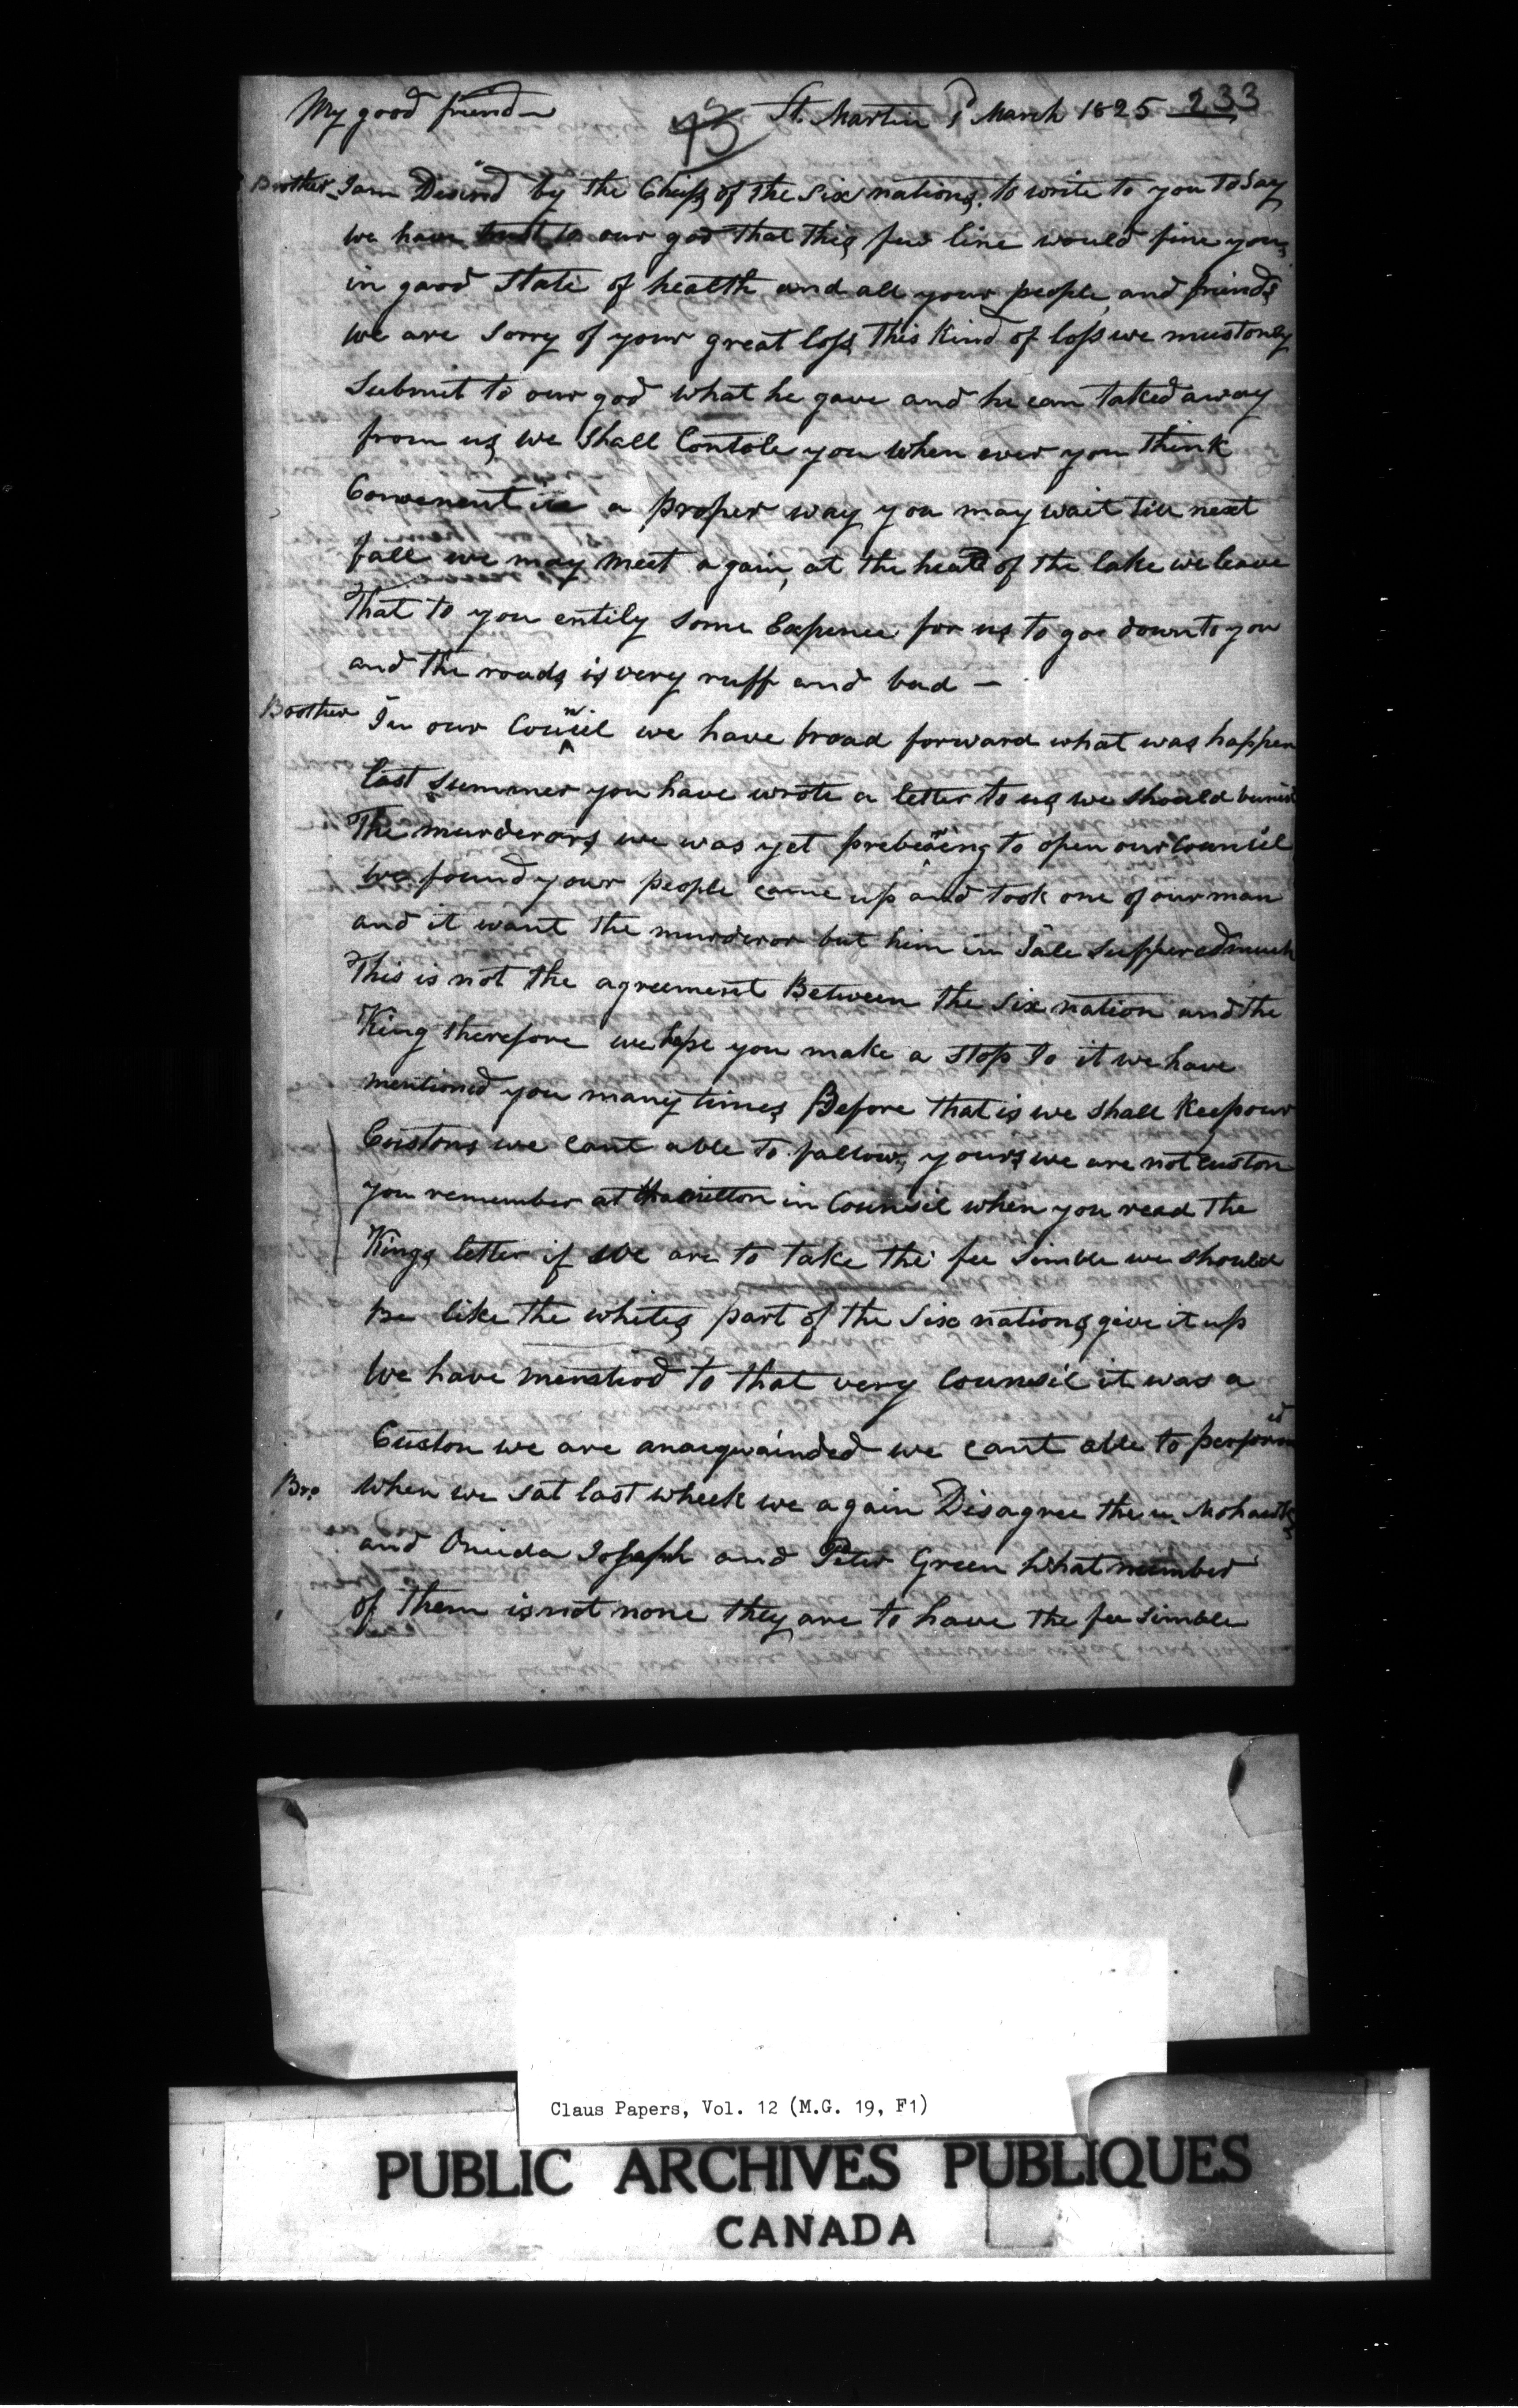 My good friend
73 St. Martin 1st March 1825 233
Brother I am Desird by the Cheifs of the six nations, to write to you to say
we have our god that this few line would fine you
in good state of health and all your people and friends
we are sorry of your great loss this Kind of loss we must only
submit to our god what he gave and he can taked away
from us, we shall Contole you when ever you think
Convenent a proper way you may wait till next
fall we may meet again, at the head of the lake we leave
That to you entily some Expence for us to goe down to you
and the roads is very ruff and bad —
Brother In our Councel we have broad forward what was happen
last summer you have wrote a letter to us we should buried
The murderors we was yet prebearing to open our Council
We found your people came up and took one of our man
and it want the murderor but him in Jale suffered much
This is not the agreement Between the six nation and the
King therefore we hope you make a stop to it we have
mentioned you many times Before that is we shall Keep our
Coustons we cant able to fallow, yours we are not custon
you remember at Hamilton in Counsel when you read the
Kings letter if we are to take the fee simble we should
Be like the whites part of the Six nations give it up
We have menstiod to that very Counsil it was a
Custon we are anacquainded we cant able to perform it
Bro When we sat last wheek we again Disagree the u. Mohawks
and Oneida Joseph and Peter Green What number
of them is not none they are to have the fee simble
Claus Papers, Vol. 12 (M.G. 19, F1)
PUBLIC ARCHIVES PUBLIQUES
CANADA